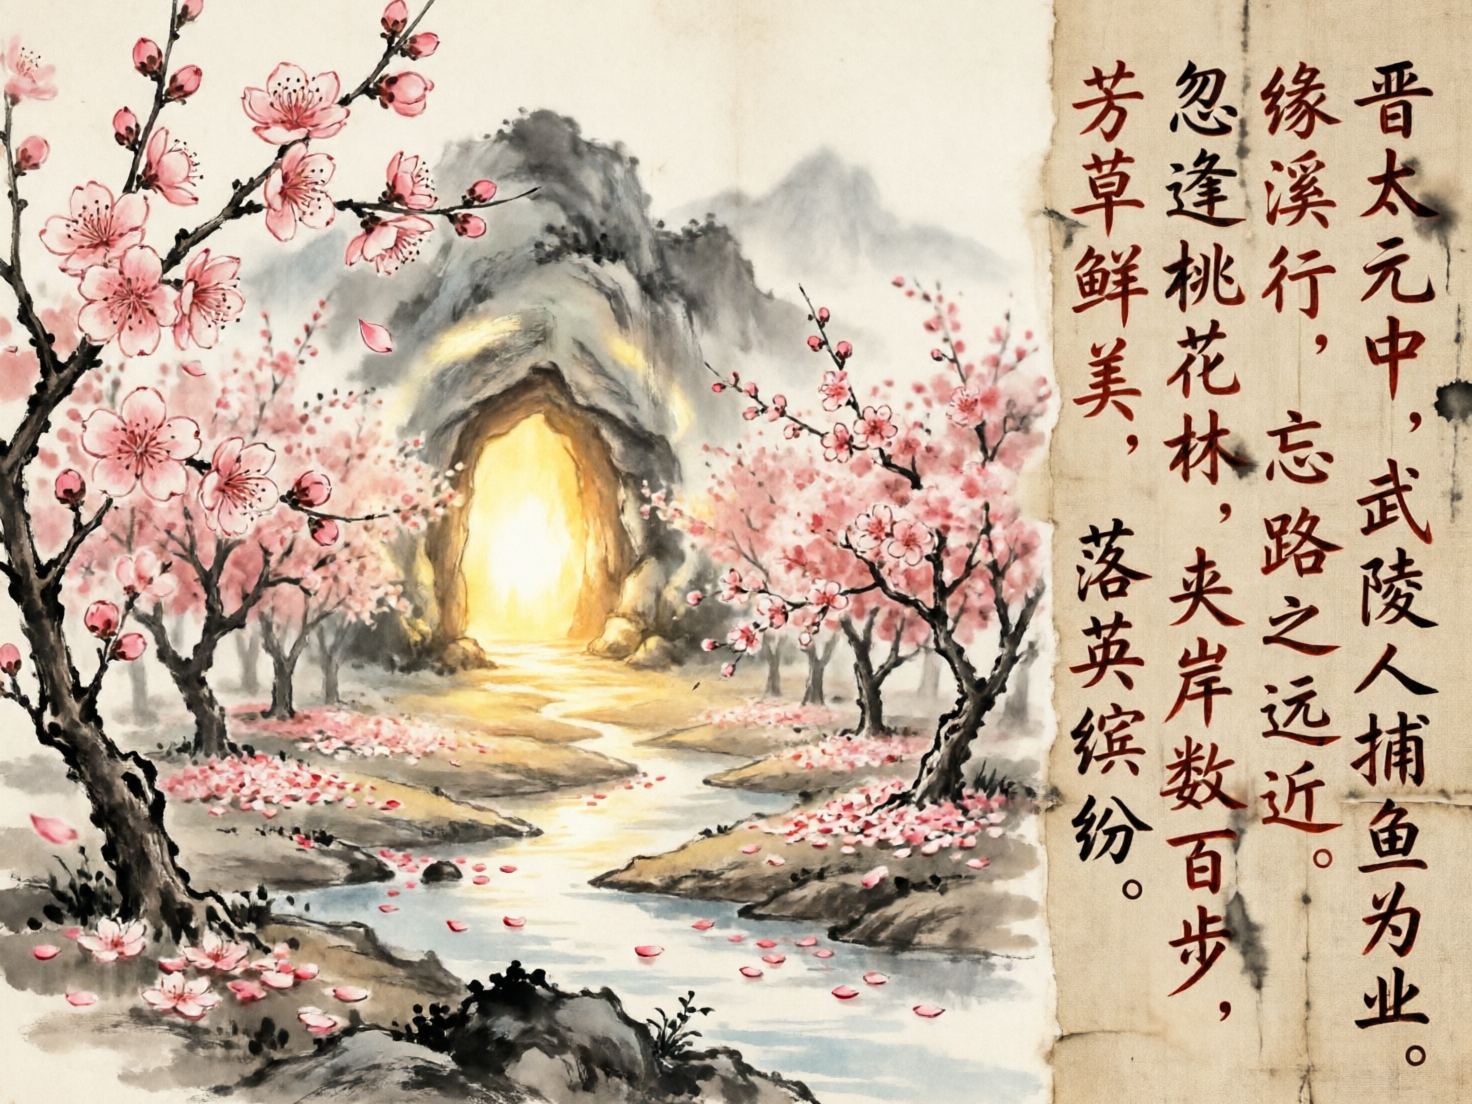 晋太元中，武陵人捕鱼为业。
缘溪行，忘路之远近。
忽逢桃花林，夹岸数百步，
芳草鲜美，落英缤纷。